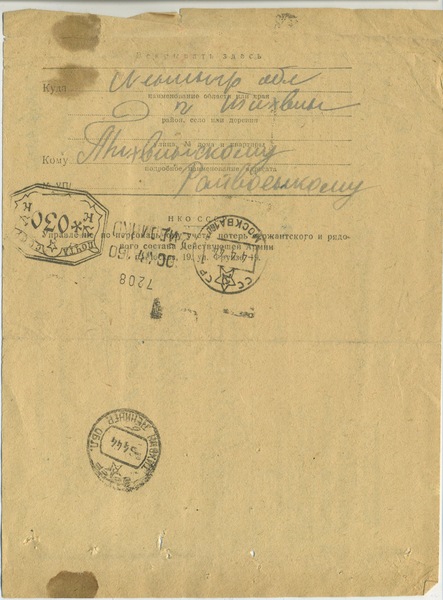 здесь
Куда Ленингр обл
наименование области или края
г Тихвин
район, село или деревня
улица, № дома и квартиры
Кому Тихвинскому
подробное наименование адресата
Райвоенкому
НКО СССР
Управление по персональному учету потерь сержантского и рядо-
вого состава Действующей Армии
19, ул. Фрунзе, 19.
ПОЧТА СССР
030 К
МОСКВА
4 4 44
СССР
7208
ТИХВИН ЛЕНИНГР. ОБЛ.
5 4 44